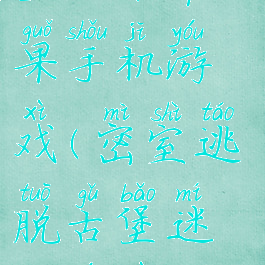 guǒ shǒu jī yóu
果手机游
xì mì shì táo
戏(密室逃
tuō gǔ bǎo mí
脱古堡迷